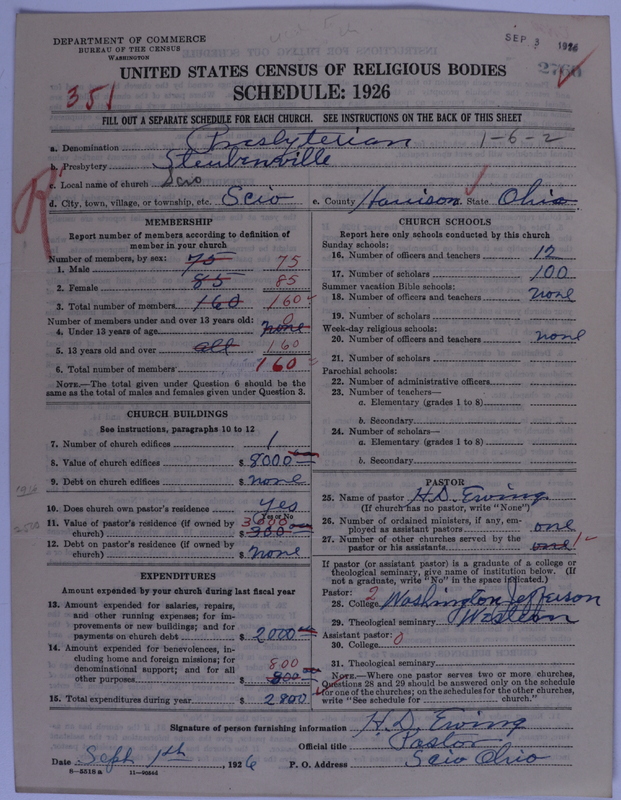 DEPARTMENT OF COMMERCE
BUREAU OF THE CENSUS
WASHINGTON
SEP 3 1926
2760
UNITED STATES CENSUS OF RELIGIOUS BODIES
351
SCHEDULE: 1926
FILL OUT A SEPARATE SCHEDULE FOR EACH CHURCH. SEE INSTRUCTIONS ON THE BACK OF THIS SHEET
a. Denomination Presbyterian 1-6-2
b. Presbytery Steubenville
c. Local name of church Scio
d. City, town, village, or township, etc. Scio e. County Harrison State Ohio
R
MEMBERSHIP
Report number of members according to definition of
member in your church
Number of members, by sex:
1. Male 75 75
2. Female 85 85
3. Total number of members 160 160
Number of members under and over 13 years old:
4. Under 13 years of age none 0
5. 13 years old and over all 160
6. Total number of members 160
NOTE.—The total given under Question 6 should be the
same as the total of males and females given under Question 3.
CHURCH BUILDINGS
See instructions, paragraphs 10 to 12
7. Number of church edifices 1
8. Value of church edifices $ 8000
9. Debt on church edifices $ none
10. Does church own pastor's residence yes
(Yes or No)
11. Value of pastor's residence (if owned by
church) $ 300 3000
12. Debt on pastor's residence (if owned by
church) $ none
EXPENDITURES
Amount expended by your church during last fiscal year
13. Amount expended for salaries, repairs,
and other running expenses; for im-
provements or new buildings; and for
payments on church debt $ 2000
14. Amount expended for benevolences, in-
cluding home and foreign missions; for
denominational support; and for all 800
other purposes $ 800
15. Total expenditures during year $ 2800
CHURCH SCHOOLS
Report here only schools conducted by this church
Sunday schools:
16. Number of officers and teachers 12
17. Number of scholars 100
Summer vacation Bible schools:
18. Number of officers and teachers none
19. Number of scholars
Week-day religious schools:
20. Number of officers and teachers none
21. Number of scholars
Parochial schools:
22. Number of administrative officers
23. Number of teachers—
a. Elementary (grades 1 to 8)
b. Secondary
24. Number of scholars—
a. Elementary (grades 1 to 8)
b. Secondary
PASTOR
25. Name of pastor H. D. Ewing
(If church has no pastor, write "None")
26. Number of ordained ministers, if any, em-
ployed as assistant pastors one
27. Number of other churches served by the
pastor or his assistants one 1
If pastor (or assistant pastor) is a graduate of a college or
theological seminary, give name of institution below. (If
not a graduate, write "No" in the space indicated.)
Pastor: 2
28. College Washington Jefferson
29. Theological seminary Western
Assistant pastor: 0
30. College
31. Theological seminary
NOTE.—Where one pastor serves two or more churches,
Questions 28 and 29 should be answered only on the schedule
for one of the churches; on the schedules for the other churches,
write "See schedule for church."
Signature of person furnishing information H. D. Ewing
Official title Pastor
Date Sept 1th, 1926 P. O. Address Scio Ohio
8—5518 a